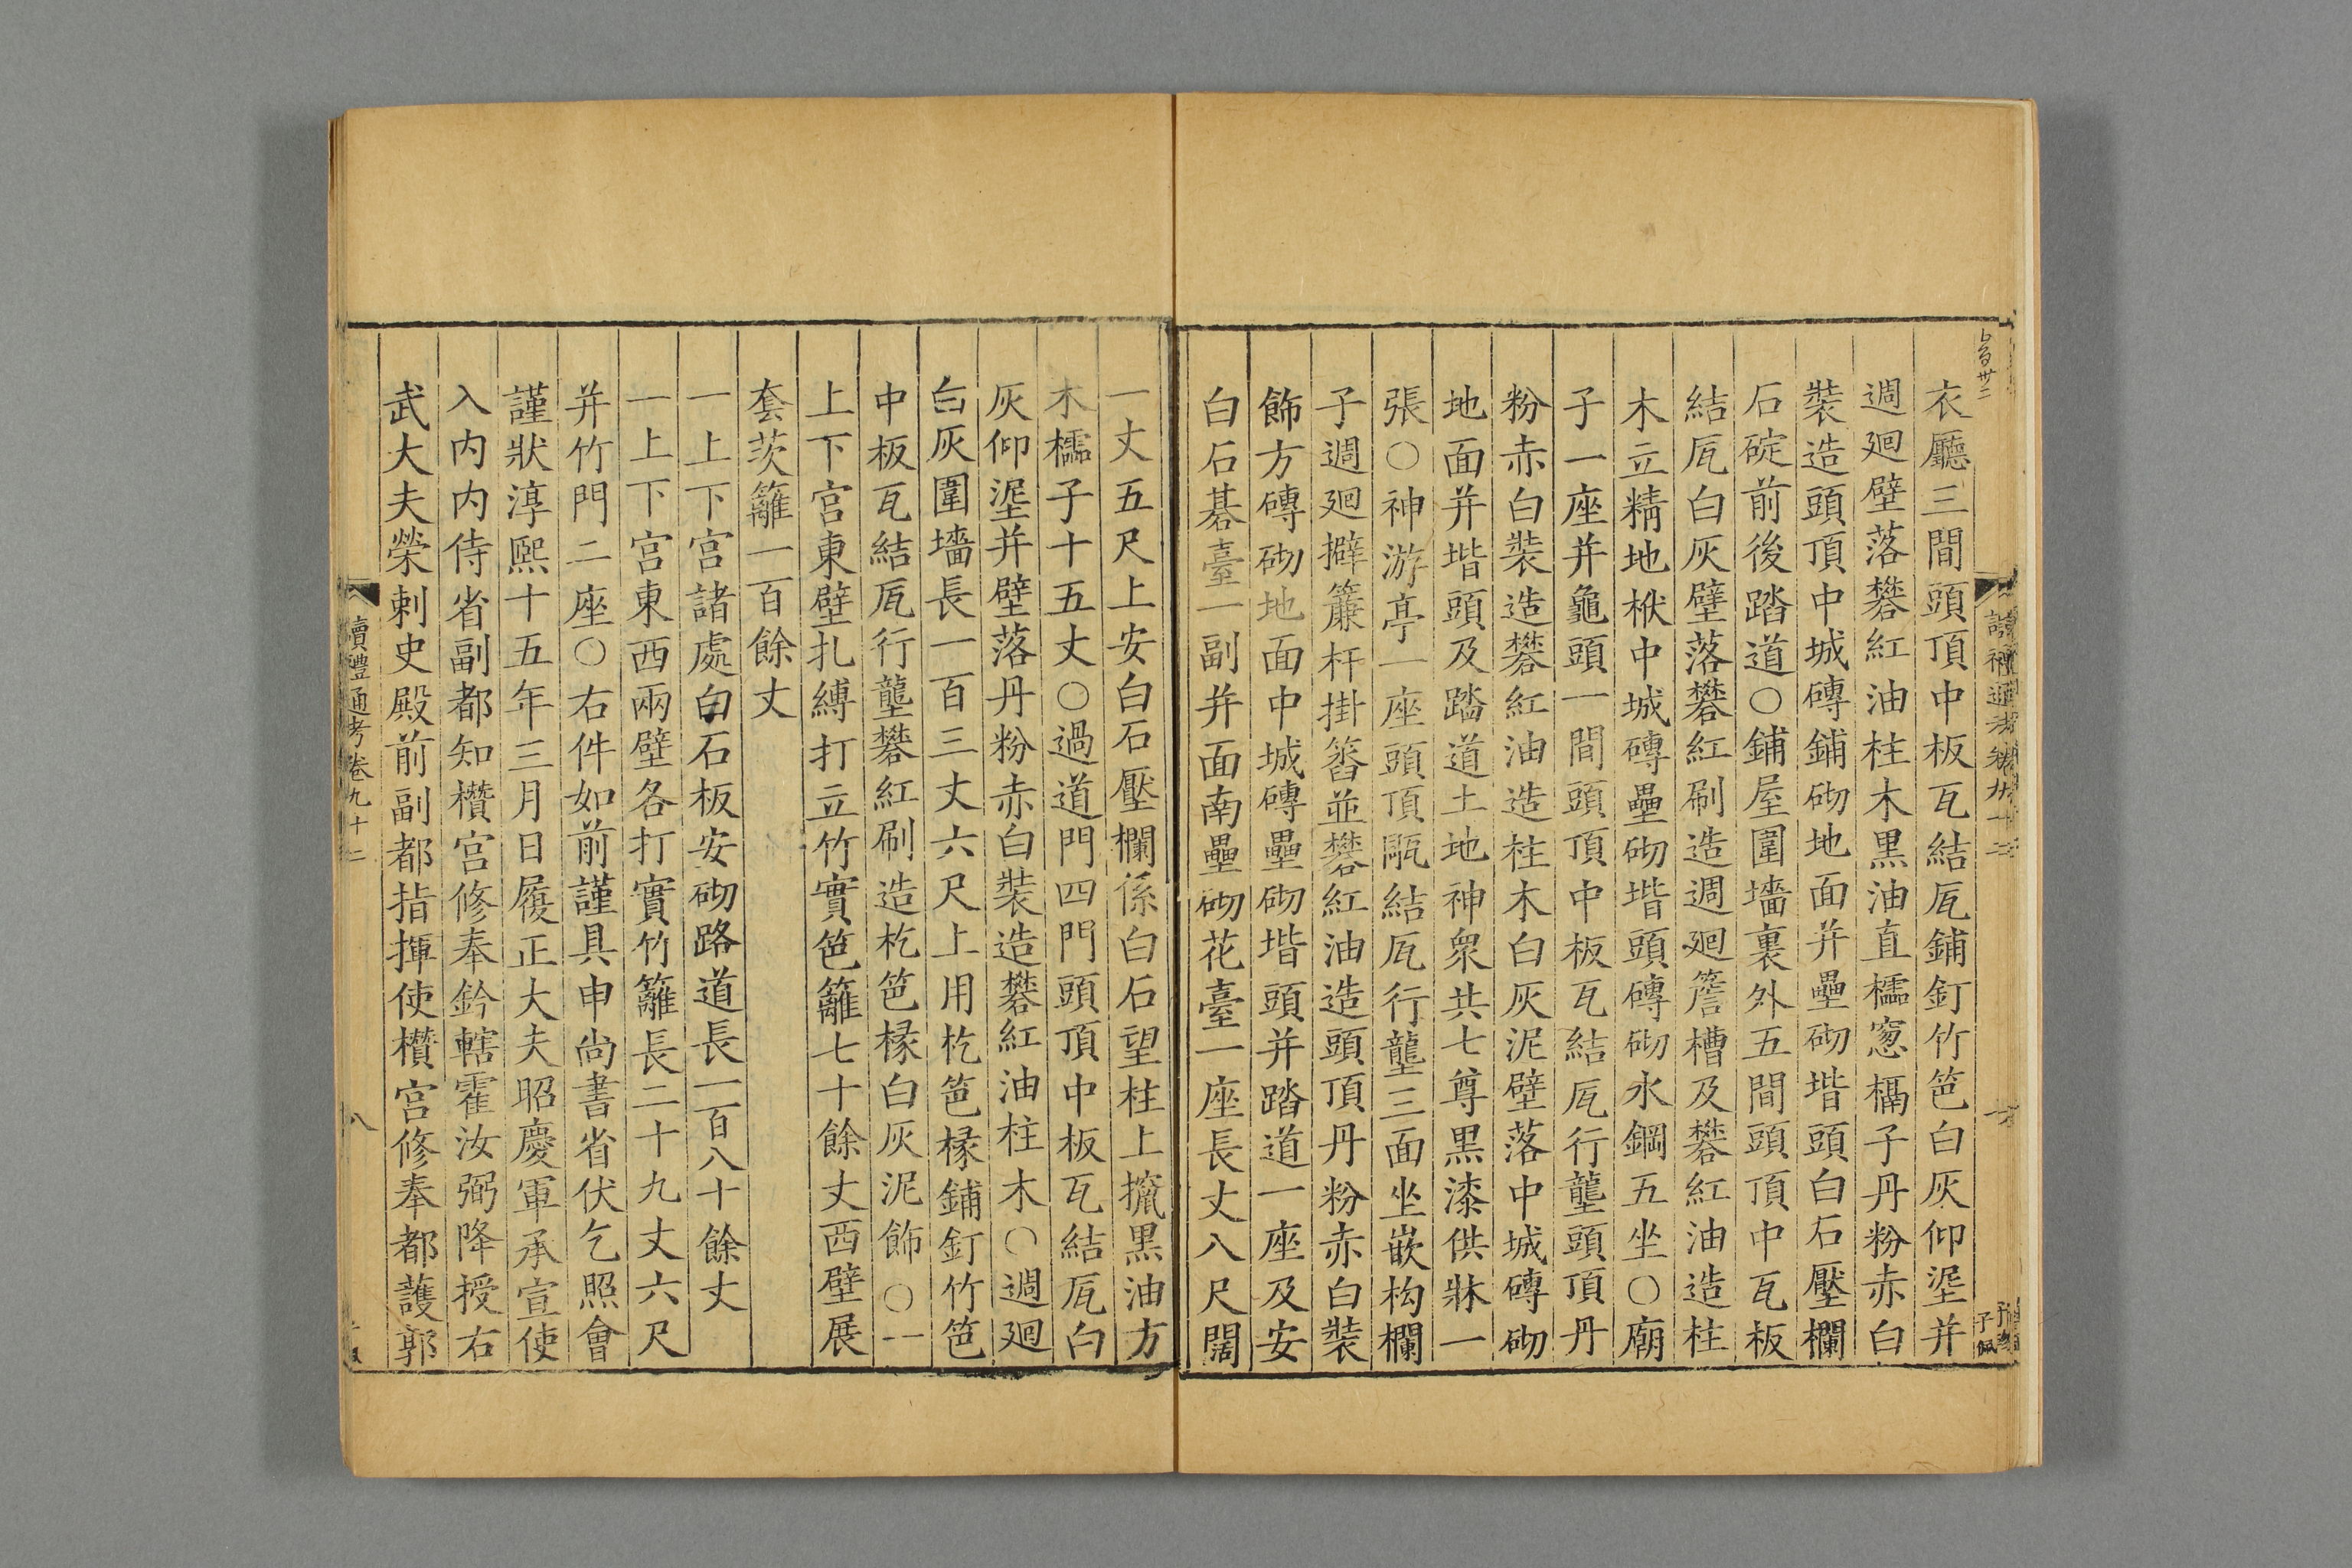 衣廳三間頭頂中板瓦結㼧鋪釘竹笆白灰仰泥并
週廻壁落礬紅油柱木黒油直櫺窻槅子丹粉赤白
裝造頭頂中城磚鋪砌地面并壘砌堦頭白石壓欄
石碇前後踏道○鋪屋圍墻裏外五間頭頂中瓦板
結㼧白灰壁落礬紅刷造週廻簷槽及礬紅油造柱
木立精地栿中城磚壘砌堦頭磚砌水鋼五坐○廟
子一座并龜頭一間頭頂中板瓦結㼧行壟頭頂丹
粉赤白裝造礬紅油造柱木白灰泥壁落中城磚砌
地面并堦頭及踏道土地神衆共七尊黒漆供牀一
張○神游亭一座頭頂甋結㼧行壟三面坐嵌构欄
子週廻擗簾杆掛簬並礬紅油造頭頂丹粉赤白裝
飾方磚砌地面中城磚壘砌堦頭并踏道一座及安
白石碁臺一副并面南壘砌花臺一座長丈八尺闊
一丈五尺上安白石壓欄係白石望柱上攛黒油方
木櫺子十五丈○過道門四門頭頂中板瓦結㼧白
灰仰泥并壁落丹粉赤白裝造礬紅油柱木○週廻
白灰圍墻長一百三丈六尺上用杚笆椽鋪釘竹笆
中板瓦結㼧行壟礬紅刷造杚笆椽白灰泥飾○一
上下宫東壁扎縛打立竹實笆籬七十餘丈西壁展
套茨籬一百餘丈
一上下宫諸處白石板安砌路道長一百八十餘丈
一上下宫東西兩壁各打實竹籬長二十九丈六尺
并竹門二座○右件如前謹具申尚書省伏乞照會
謹狀淳熙十五年三月日履正大夫昭慶軍承宣使
入内内侍省副都知欑宫修奉鈐轄霍汝弼降授右
武大夫榮刺史殿前副都指揮使欑宫修奉都護郭
讀禮通考卷九十二
八